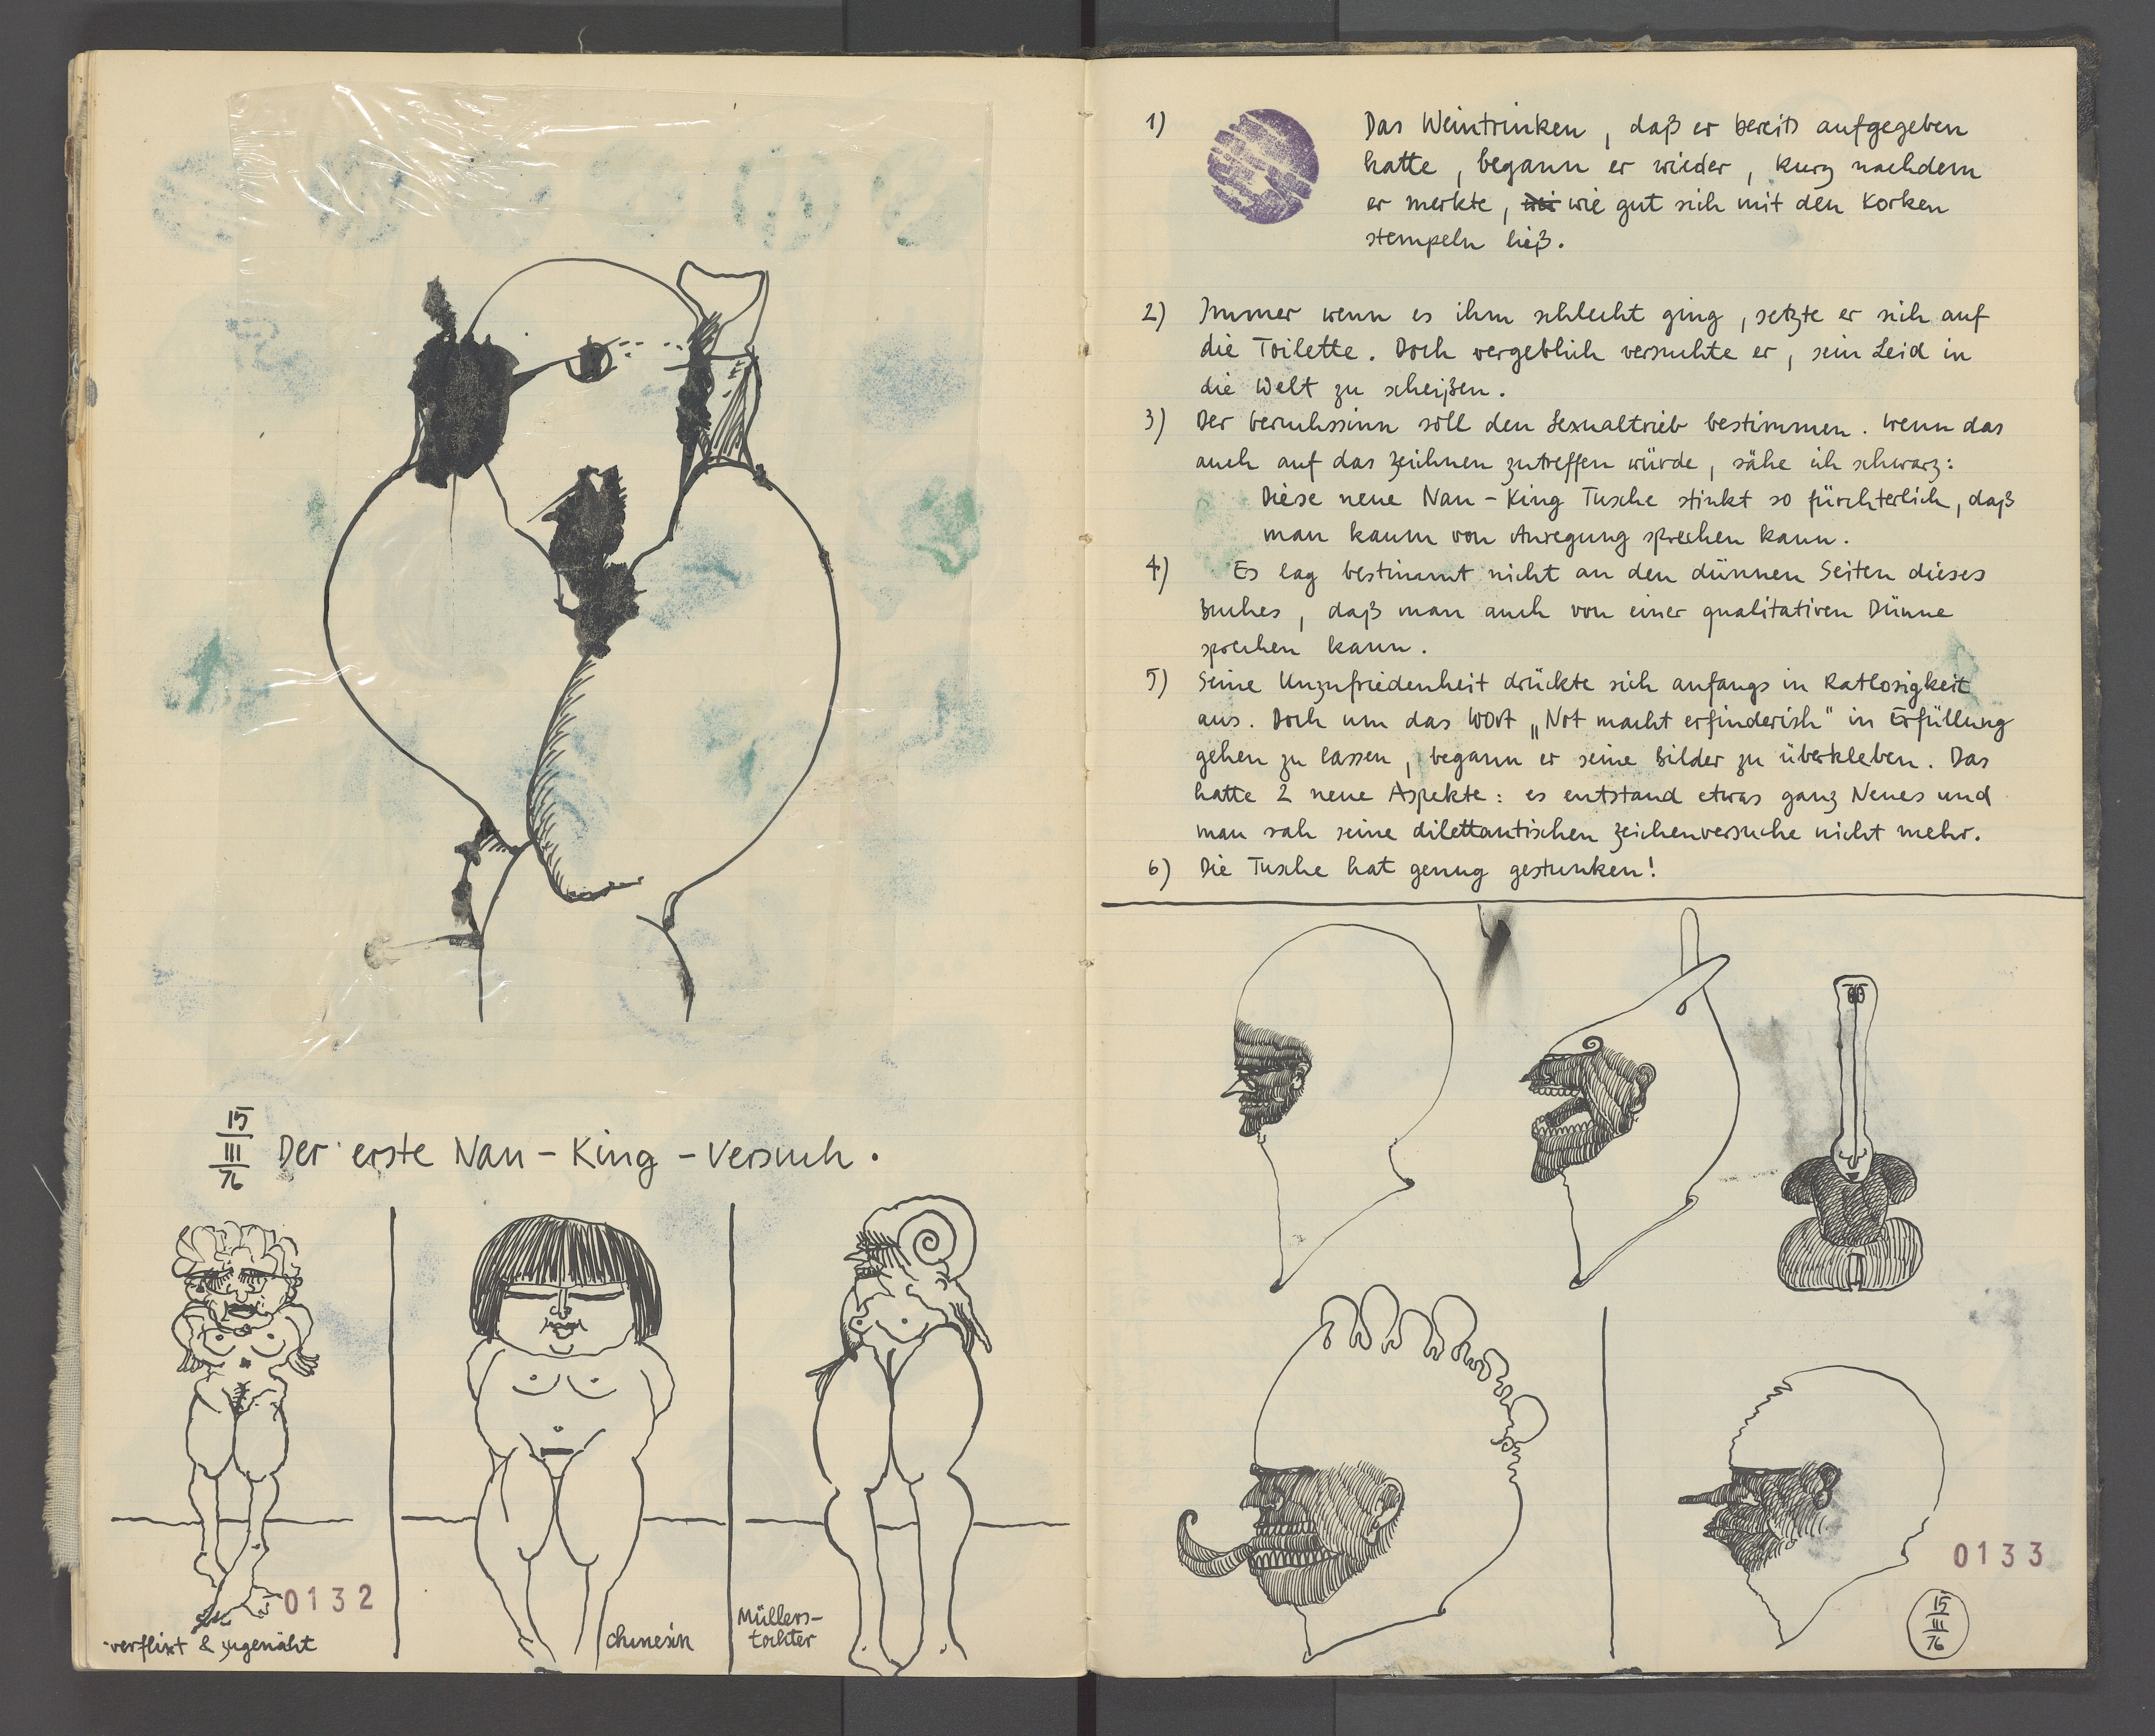 15
III
76
Der erste Nan-King-Versuch.
verflixt & zugenäht
0132
Chinesin
Müllers-
tochter
1) Das Weintrinken, daß er bereits aufgegeben
hatte, begann er wieder, kurz nachdem
er merkte, wie gut sich mit den Korken
stempeln ließ.
2) Immer wenn es ihm schlecht ging, setzte er sich auf
die Toilette. Doch vergeblich versuchte er, sein Leid in
die Welt zu scheißen.
3) Der Geruchssinn soll den Sexualtrieb bestimmen. Wenn das
auch auf das Zeichnen zutreffen würde, sähe ich schwarz:
Diese neue Nan-King Tusche stinkt so fürchterlich, daß
man kaum von Anregung sprechen kann.
4) Es lag bestimmt nicht an den dünnen Seiten dieses
Buches, daß man auch von einer qualitativen Dünne
sprechen kann.
5) Seine Unzufriedenheit drückte sich anfangs in Ratlosigkeit
aus. Doch um das Wort „Not macht erfinderisch" in Erfüllung
gehen zu lassen, begann er seine Bilder zu überkleben. Das
hatte 2 neue Aspekte: es entstand etwas ganz Neues und
man sah seine dilettantischen Zeichenversuche nicht mehr.
6) Die Tusche hat genug gestunken!
0133
15
III
76